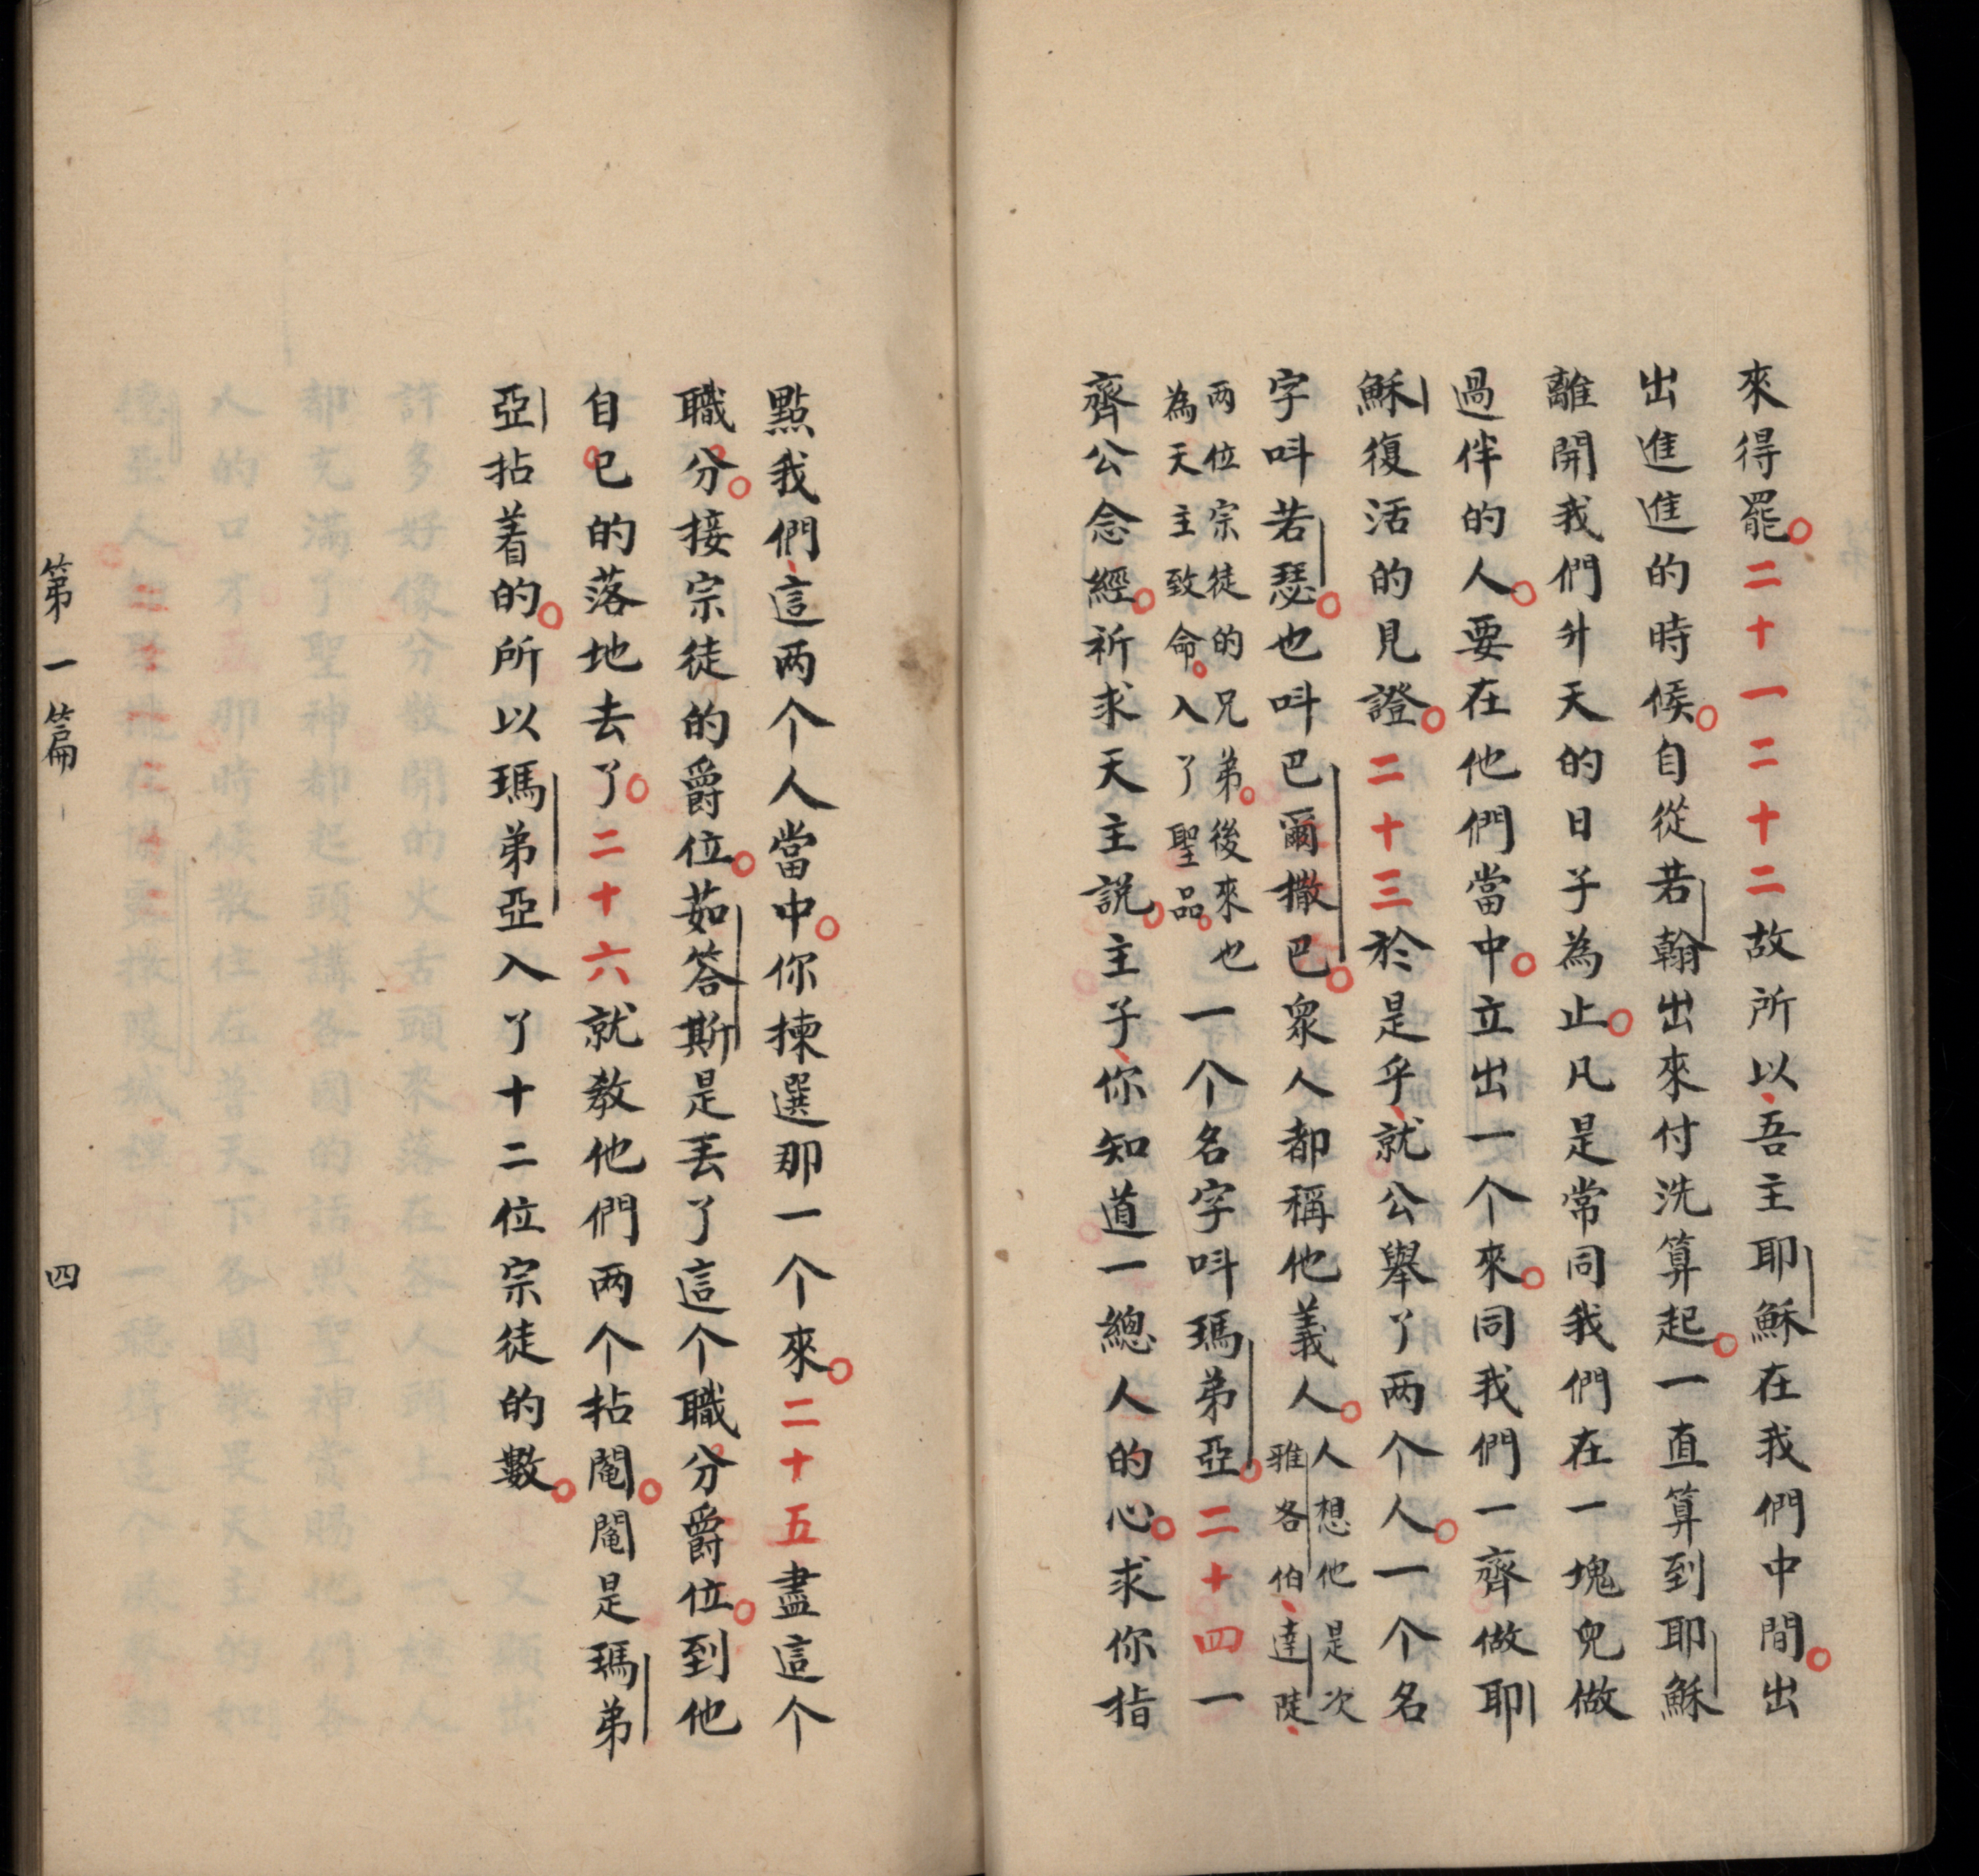 來得罷。二十一二十二故所以、吾主耶穌在我們中間。出
出進進的時候。自從若翰出來付洗算起。一直算到耶穌
離開我們升天的日子為止。凡是常同我們在一塊兒做
過伴的人。要在他們當中。立出一个來。同我們一齊做耶
穌復活的見證。二十三於是乎、就公舉了两个人。一个名
字呌若瑟。也呌巴爾撒巴。眾人都稱他義人。人想他是次
雅各伯、達陡、
两位宗徒的兄弟。後來也
為天主致命。入了聖品。一个名字呌瑪弟亞。二十四一
齊公念經。祈求天主説。主子、你知道一總人的心。求你指
點我們、這两个人當中。你揀選那一个來。二十五盡這个
職分。接宗徒的爵位。茹答斯是丟了這个職分爵位。到他
自己的落地去了。二十六就教他們两个拈鬮。鬮是瑪弟
亞拈着的。所以瑪弟亞入了十二位宗徒的數。
第一篇 四